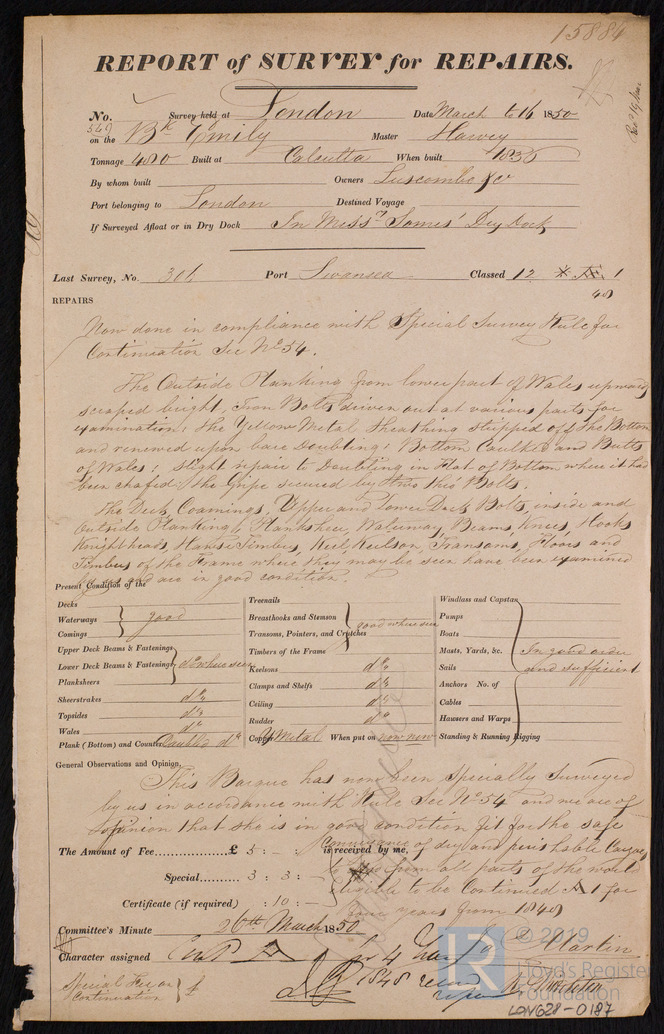 15884
REPORT of SURVEY for REPAIRS.
No. Survey held at London Date March to 16 1850
on the Bk Emily Master
Tonnage 480 Built at Calcutta When built
By whom built Owners Luscombe & Co
Port belonging to London Destined Voyage
If Surveyed Afloat or in Dry Dock In Messrs Somes' Dry Dock
Last Survey, No. Port Swansea Classed 12 1
48
REPAIRS
Now done in compliance with Special Survey Rule for
Continuation Sec No 54.
The Outside Planking from lower part of Wales upward
scraped bright, Iron Bolts driven out at various parts for
examination: the Yellow Metal Sheathing stripped off the Bottom
and renewed upon bare Doubling: Bottom Caulked and Butts
of Wales: slight repair to Doubling in Flat of Bottom where it had
been chafed: the Gripe secured by thro' Bolts.
The Deck, Coamings, Upper and Lower Deck Bolts, inside and
Outside Planking, Planksheer, Waterway, Beams, Knees, Hooks
Knightheads, Hawse Timbers, Keel, Keelson, Transoms, Floors and
Timbers of the Frame where they may be seen have been examined
and are in good condition.
Present Condition of the
Decks
Waterways good
Comings
Upper Deck Beams & Fastenings
Lower Deck Beams & Fastenings do where seen
Planksheers
Sheerstrakes do
Topsides do
Wales do
Plank (Bottom) and Counter Doubled do
Treenails
Breasthooks and Stemson good where seen
Transoms, Pointers, and Crutches
Timbers of the Frame
Keelsons do
Clamps and Shelfs do
Ceiling do
Rudder do
Copper Y Metal When put on now new
Windlass and Capstan
Pumps
Boats
Masts, Yards, &c. In good order
Sails and sufficient
Anchors No. of
Cables
Hawsers and Warps
Standing & Running Rigging
General Observations and Opinion,
This Barque has now been Specially Surveyed
by us in accordance with Rule Sec No 54 and we are of
opinion that she is in good condition fit for the safe
conveyance of dry and perishable Cargoes
to and from all parts of the world
eligible to be Continued A 1 for
years from 1848
The Amount of Fee £ 5 : - is received by me,
Special 3 : 3 : -
Certificate (if required) : 10 : -
Committee's Minute 26th March 1850
Character assigned Cont A for 4 Years
1848
Martin
Special Fee for
Continuation £
© 2019
LR
Lloyd's Register
Foundation
LON628-0187